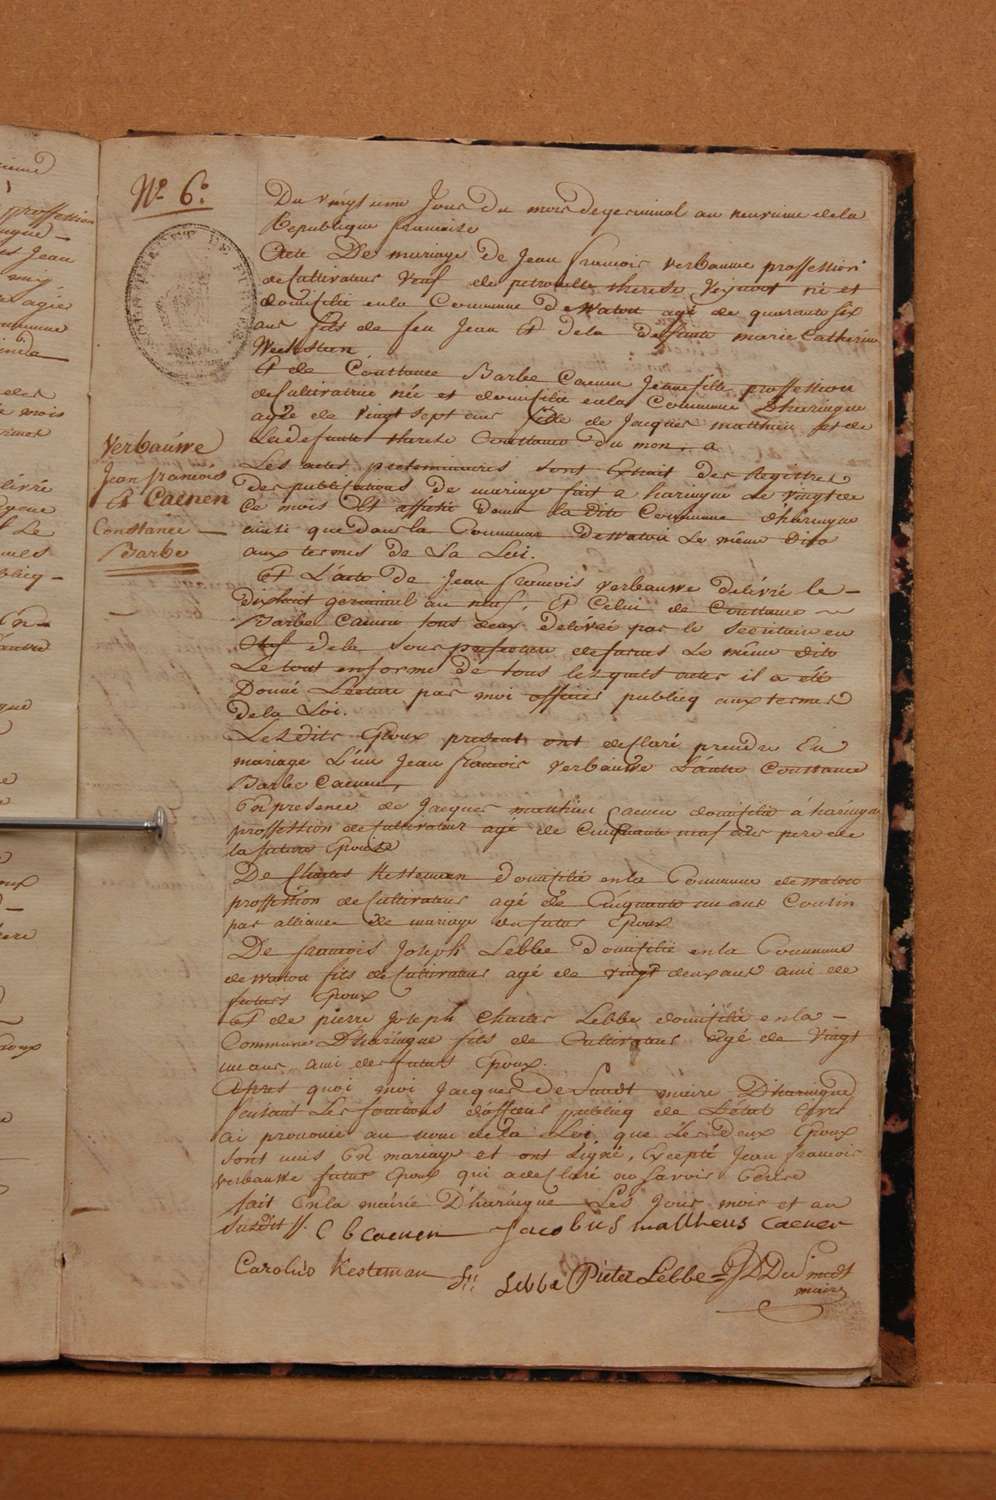 Nº 6º
Du vingtieme Jour du mois de germinal au neuvieme de la
Republique francaise
Acte De mariage de Jean francois verbauwe proffession
de Cultivateur veuf de petronille therese Reynoot né et
domicilié en la Commune De watou agé de quarante six
ans fils de feu Jean Et de la deffunte marie Catherine
Weexsteen
Et de Constance Barbe Caenen Jeune fille proffession
de Cultivatrice née et domicilié en la Commune D'haringue
agée de vingt sept ans fille de Jacques matthieu et de
La defunte therese Constance Du mon, a
Verbauwe
Jean francois
Et Caenen
Constance
Barbe
Les actes preliminaires sont Extrait des Registres
des publications de mariage fait a haringue Le vingt de
Ce mois Et affiché dans la dite Commune d'haringue
ainsi que dans la Commune De watou Le même dito
aux termes de La Loi.
Et L'acte de Jean francois verbauwe delivré le
dixhuit germinal au neuf, Et Celui de Constance
Barbe Caenen tous deux delivré par le secritaire en
Chef de la Sous prefecture de furnes Le même dito
Le tout en forme de tous lesquels actes il a été
Donné Lecture par moi officier publicq aux termes
de la Loi.
Lesdits Epoux present ont declaré prendre En
mariage L'un Jean francois verbauwe L'autre Constance
Barbe Caenen,
En presence de Jacques matthieu Caenen domicilié á haringue
proffession de Cultivateur agé de Cinquante neuf ans pere de
la future Epouse
De Charles Kesteman domicilié en la Commune de watou
proffession de Cultivateur agé de Cinquante un ans Cousin
par alliance de mariage du futur Epoux
De francois Joseph Lebbe domicilié en la Commune
de watou fils de Cultivateur agé de vingt deux ans ami de
futurs Epoux
Et de pierre Joseph Charles Lebbe domicilié en la
Commune D'haringue fils de Cultivateur agé de vingt
un ans ami des futurs Epoux.
Apres quoi moi Jacques De Smidt maire D'haringue
faisant Les fonctions d'officier publicq de L'état Civil
ai prononcé au nom de la Loi que Lesdeux Epoux
sont unis En mariage et ont signé, Excepté Jean francois
verbauwe futur Epoux qui a declaré ne savoir Ecrire
fait En la mairie D'haringue Les Jour mois et an
susdit //. C B Caenen Jacobus mattheus Caenen
Carolus Kesteman Lebbe Pieter Lebbe J De Smidt
maire